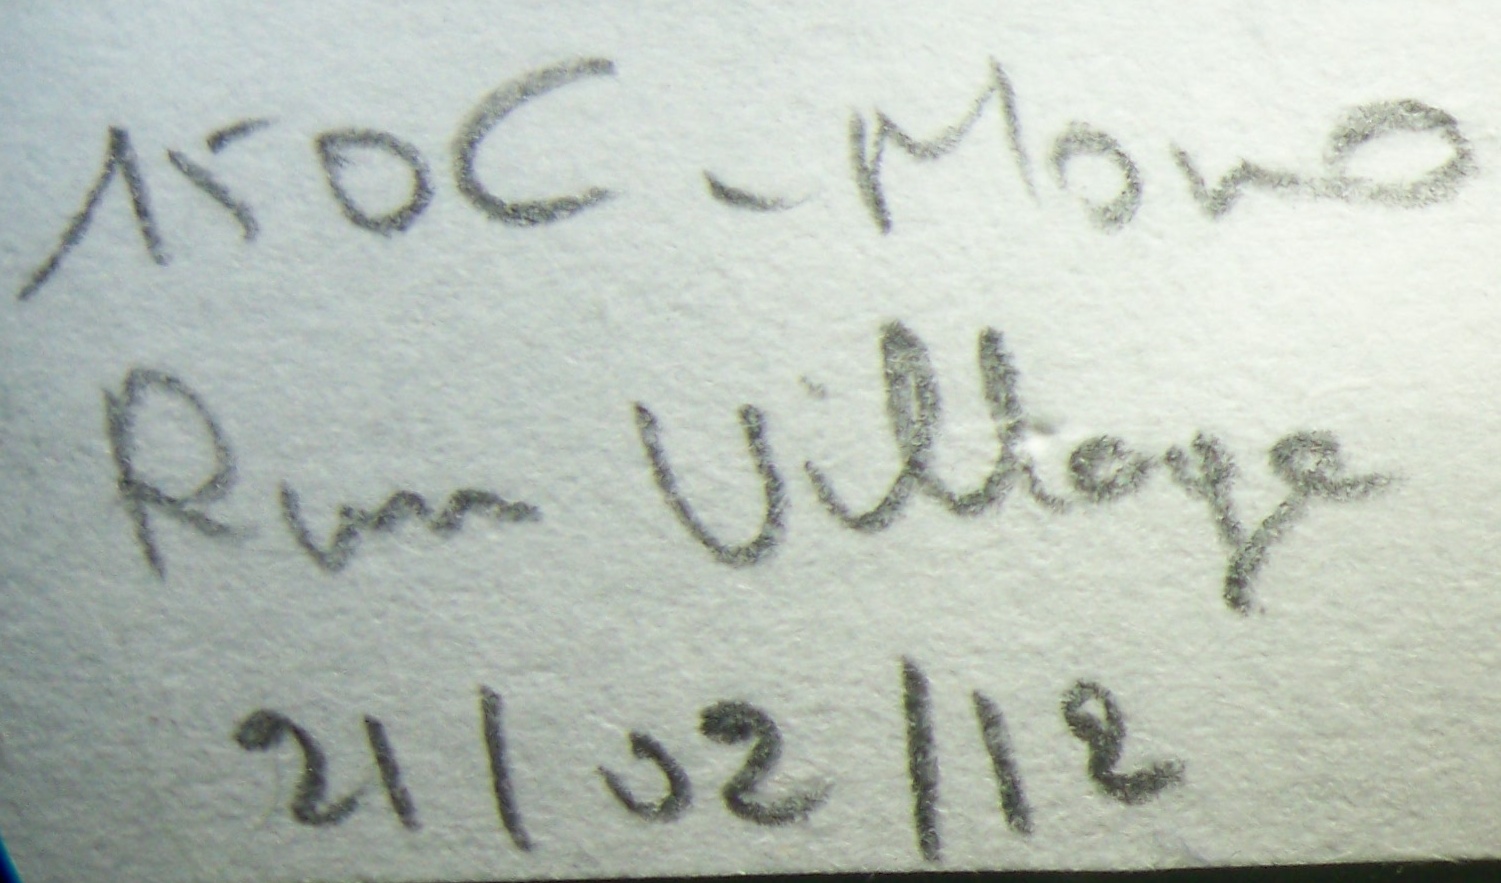 150C - Mono
Rum Village
21/02/12